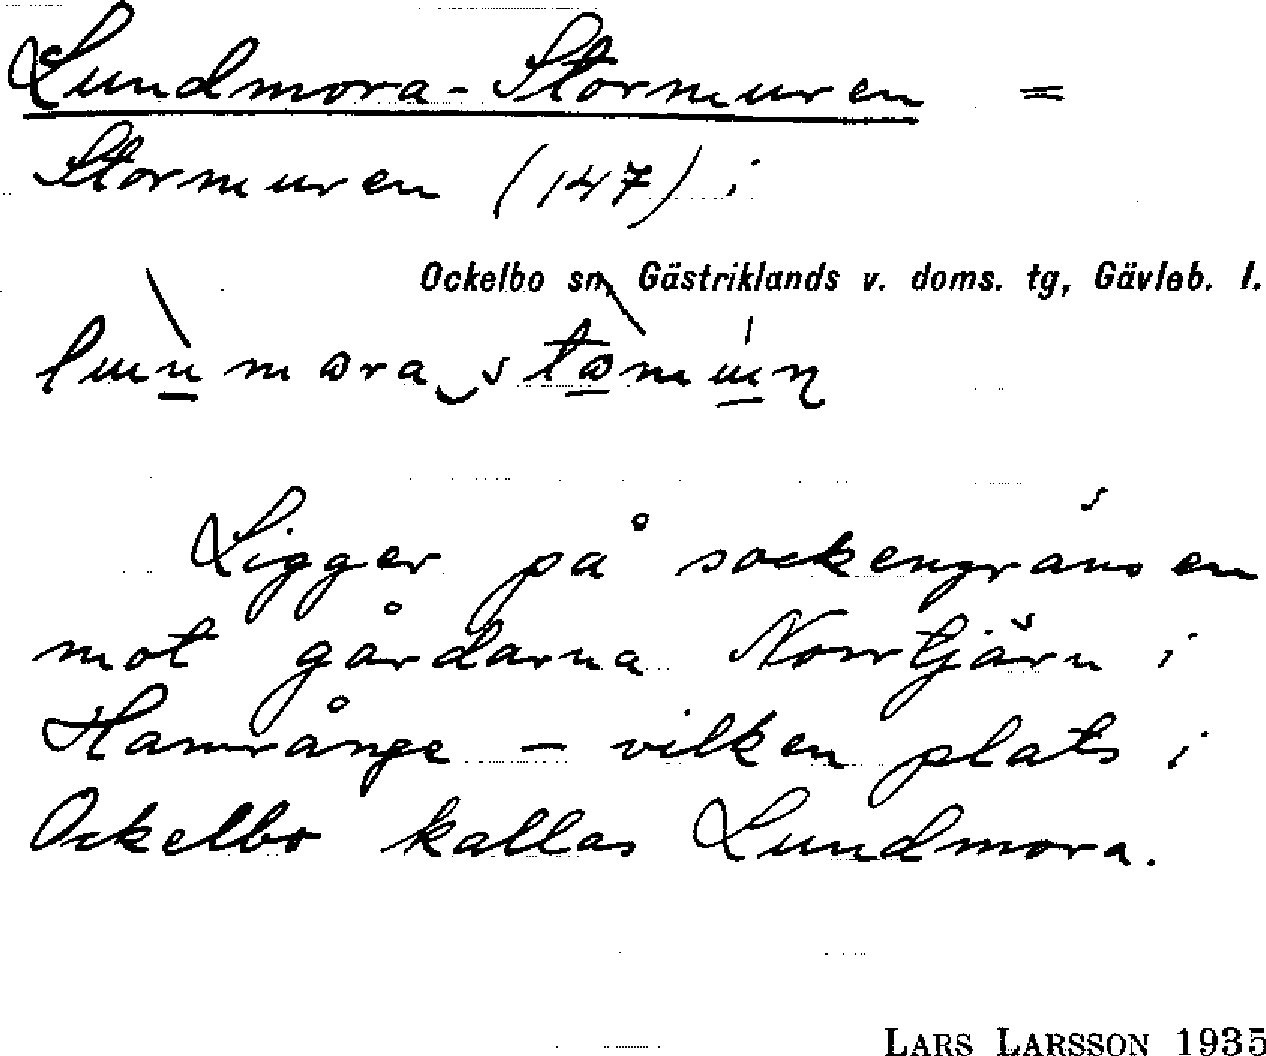 Lundmora-Stormuren =
Stormuren (147) i
Ockelbo sn, Gästriklands v. doms. tg, Gävleb. l.
Ligger på sockengränsen
mot gårdarna Norrtjärn i
Hamrånge – vilken plats i
Ockelbo kallas Lundmora.
LARS LARSSON 1935